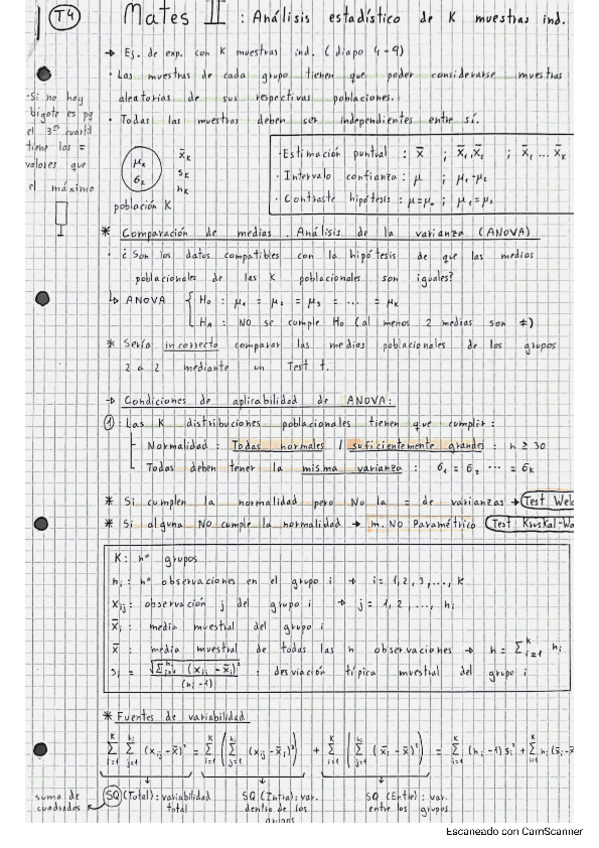 T4
Mates II : Análisis estadístico de K muestras ind.
→ Ej. de exp. con K muestras ind. (diapo 4-9)
· Las muestras de cada grupo tienen que poder considerarse muestras
aleatorias de sus respectivas poblaciones.
· Todas las muestras deben ser independientes entre sí.
· Si no hay
bigote es pq
el 3er cuartil
tiene los =
valores que
el máximo
μk σk
x̄k
sk
nk
población K
· Estimación puntual : x̄ ; x̄₁,x̄₂ ; x̄₁ ... x̄k
· Intervalo confianza : μ ; μ₁-μ₂
· Contraste hipótesis : μ=μ₀ ; μ₁=μ₂
* Comparación de medias . Análisis de la varianza (ANOVA)
· ¿Son los datos compatibles con la hipótesis de que las medias
poblacionales de las K poblacionales son iguales?
↳ ANOVA { H₀ : μ₁ = μ₂ = μ₃ = ... = μk
HA : NO se cumple H₀ (al menos 2 medias son ≠)
* Sería incorrecto comparar las medias poblacionales de los grupos
2 a 2 mediante un Test t.
→ Condiciones de aplicabilidad de ANOVA:
①: Las K distribuciones poblacionales tienen que cumplir :
Normalidad : Todas normales / suficientemente grandes : n ≥ 30
Todas deben tener la misma varianza : σ₁ = σ₂ ... = σk
* Si cumplen la normalidad pero No la = de varianzas → Test Welc
* Si alguna NO cumple la normalidad → m. No Paramétrico (Test Kruskal-Wa
K : nº grupos
nᵢ : nº observaciones en el grupo i → i = 1, 2, 3, ..., K
xᵢⱼ : observación j del grupo i → j = 1, 2, ..., nᵢ
x̄ᵢ : media muestral del grupo i
x̄ : media muestral de todas las n observaciones → n = Σᵢ₌₁ᴷ nᵢ
sᵢ = √Σⱼ₌₁ⁿⁱ (xᵢⱼ - x̄ᵢ)² / (nᵢ-1) : desviación típica muestral del grupo i
* Fuentes de variabilidad
Σᵢ₌₁ᴷ Σⱼ₌₁ⁿⁱ (xᵢⱼ - x̄)² = Σᵢ₌₁ᴷ (Σⱼ₌₁ⁿⁱ (xᵢⱼ - x̄ᵢ)²) + Σᵢ₌₁ᴷ (Σⱼ₌₁ⁿⁱ (x̄ᵢ - x̄)²) = Σᵢ₌₁ᴷ (nᵢ-1) sᵢ² + Σᵢ₌₁ᴷ nᵢ (x̄ᵢ -
suma de
cuadrados
SQ (Total) : variabilidad
total
SQ (Intra) : var.
dentro de los
grupos
SQ (Entre) : var.
entre los grupos
Escaneado con CamScanner